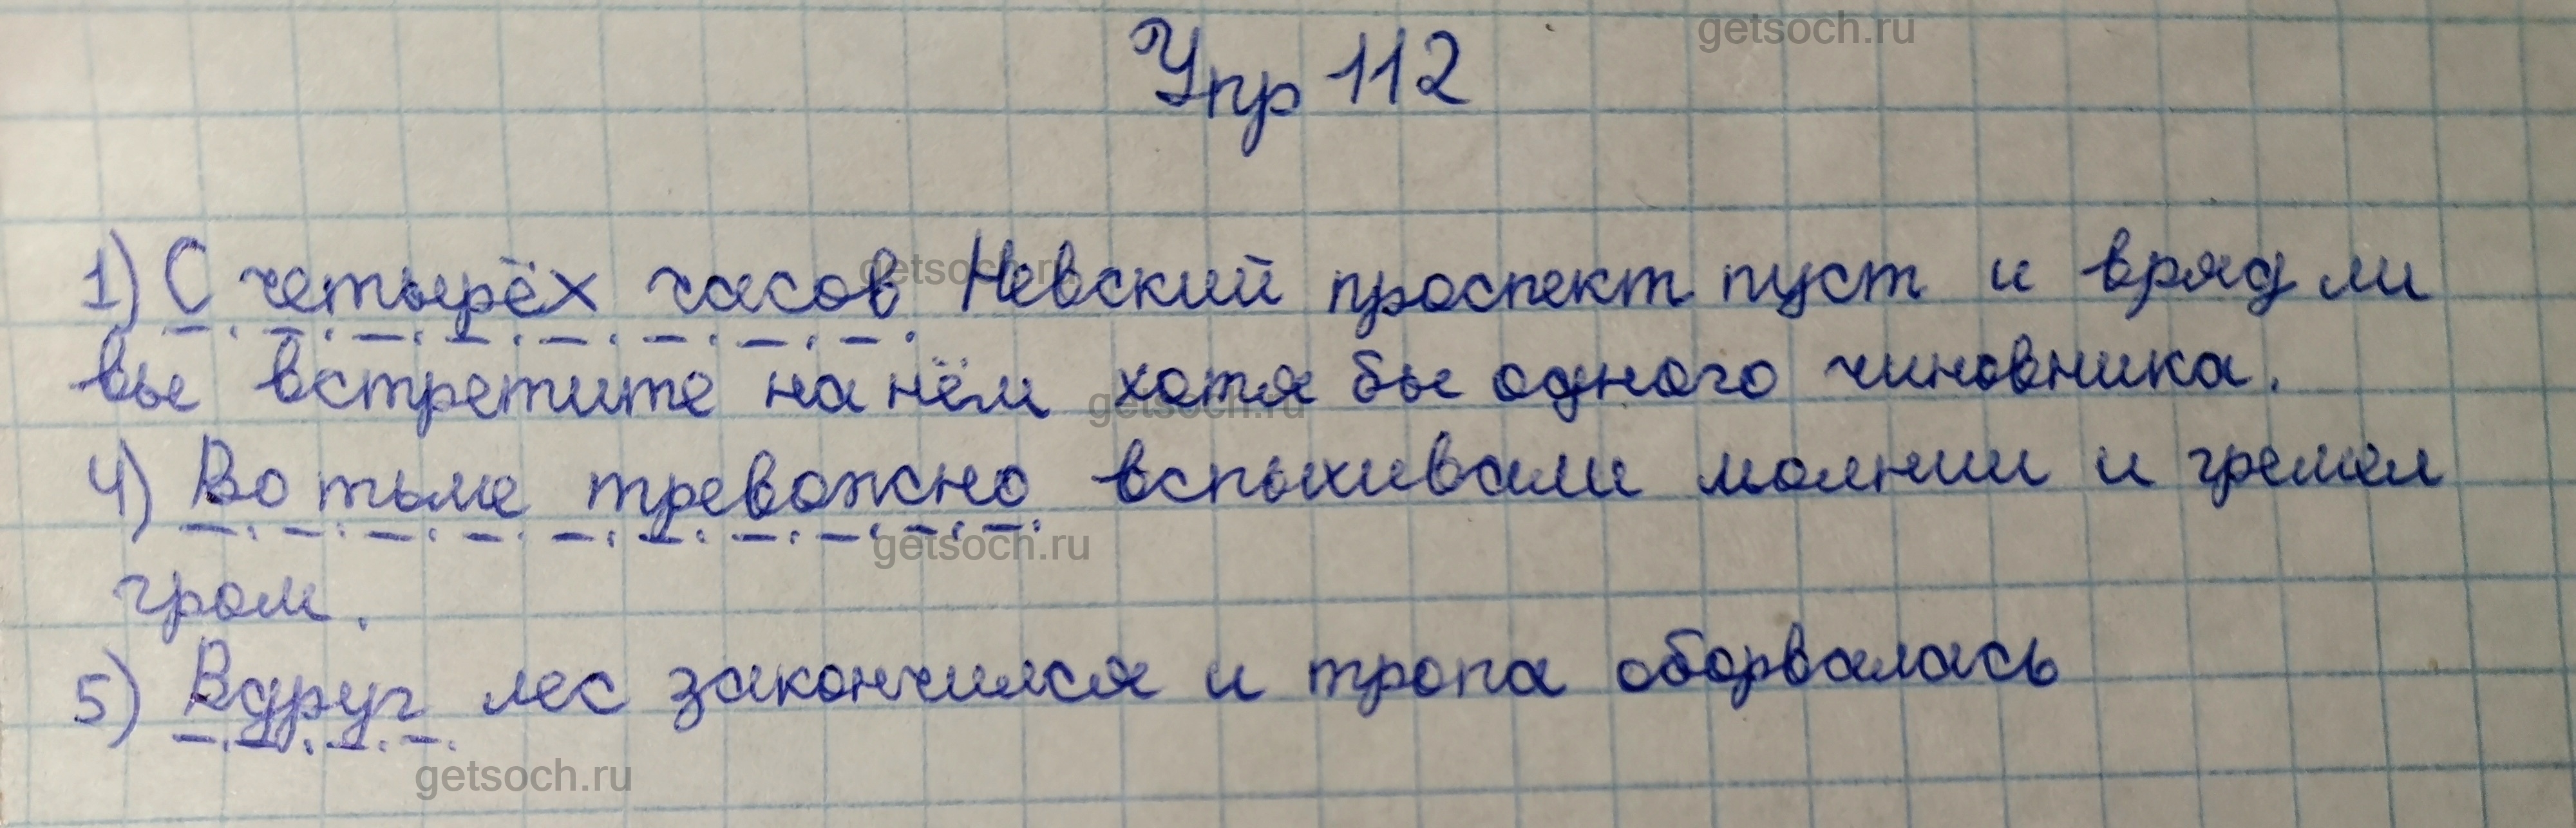 getsoch.ru
Упр 112
getsoch.ru
1) С четырёх часов Невский проспект пуст и вряд ли
вы встретите на нём хотя бы одного чиновника.
getsoch.ru
4) Во тьме тревожно вспыхивали молнии и гремел
getsoch.ru
гром.
5) Вдруг лес закончился и тропа оборвалась
getsoch.ru